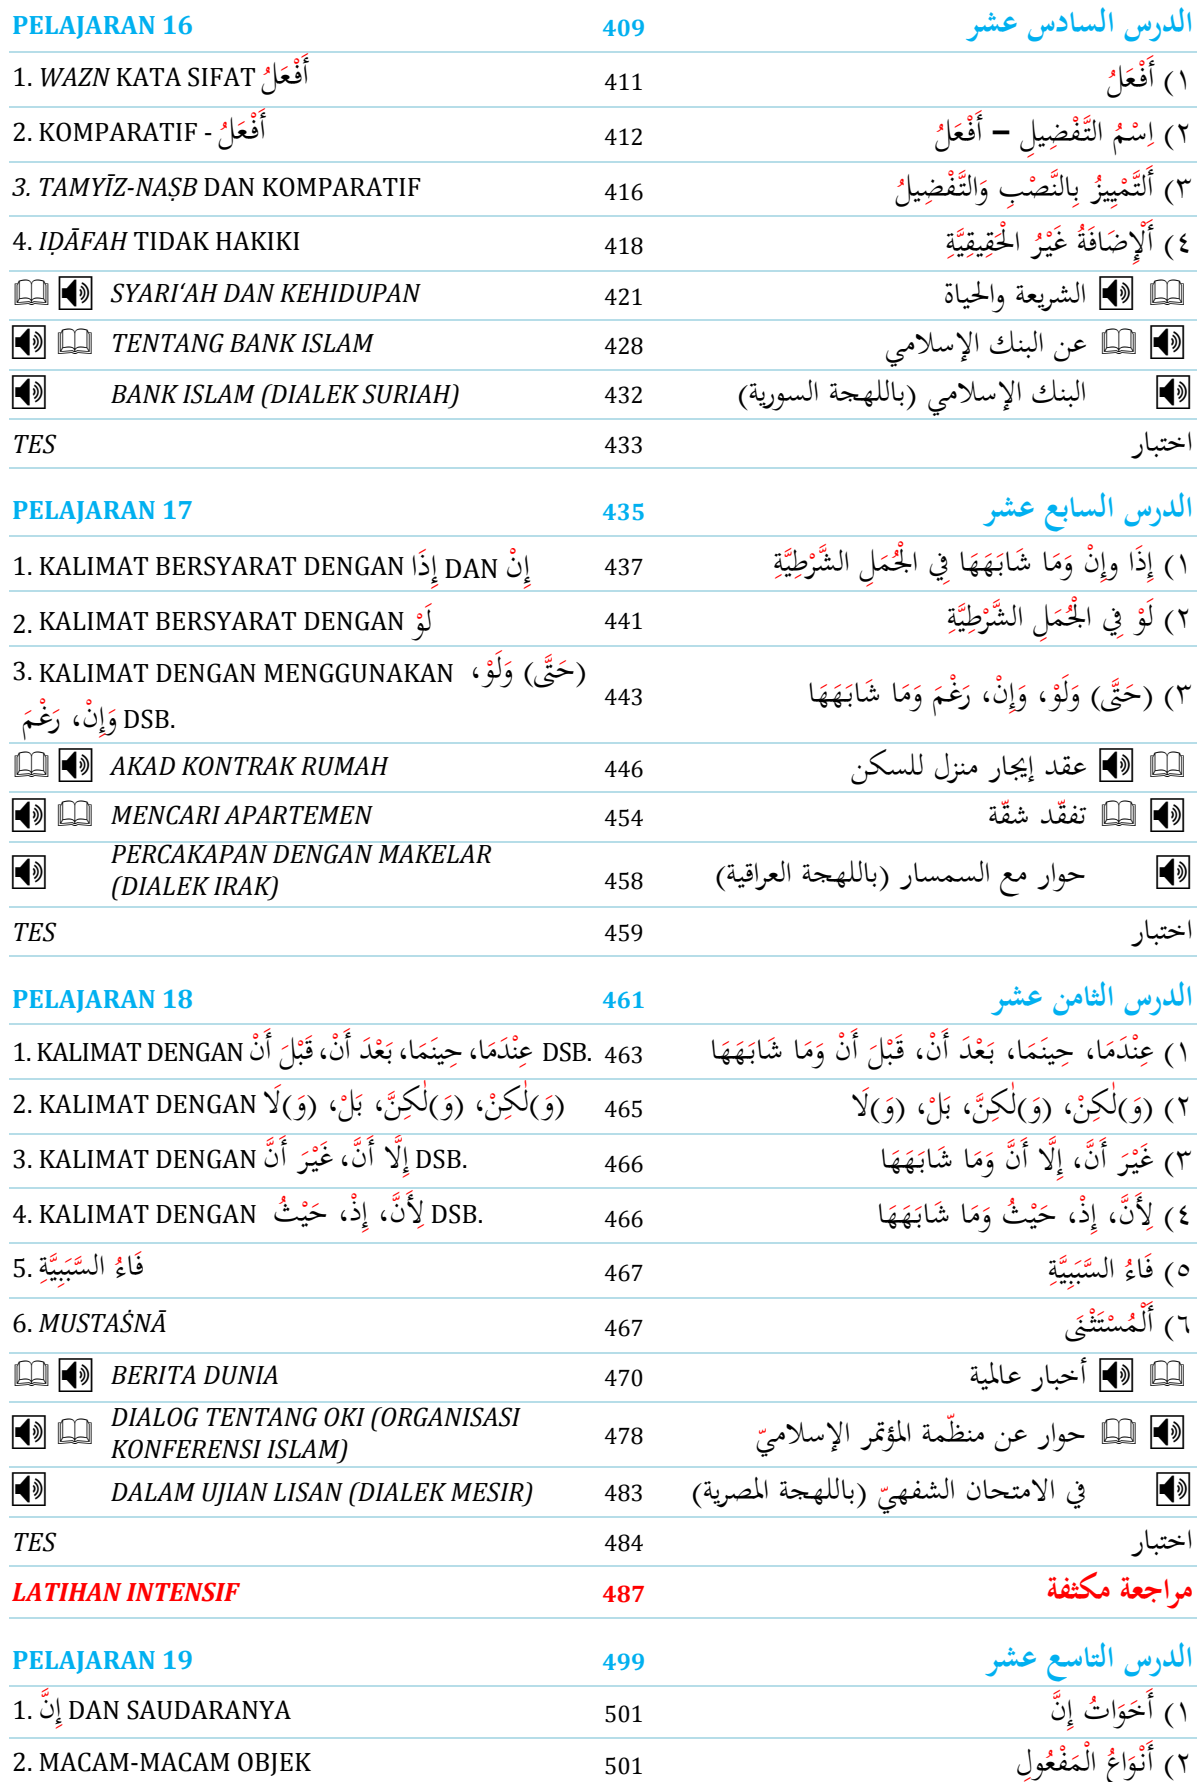 PELAJARAN 16 409 الدرس السادس عشر
1. WAZN KATA SIFAT أَفْعَلُ 411 ١) أَفْعَلُ
2. KOMPARATIF - أَفْعَلُ 412 ٢) اِسْمُ التَّفْضِيلِ – أَفْعَلُ
3. TAMYĪZ-NAṢB DAN KOMPARATIF 416 ٣) أَلتَّمْيِيزُ بِالنَّصْبِ وَالتَّفْضِيلُ
4. IḌĀFAH TIDAK HAKIKI 418 ٤) أَلْإِضَافَةُ غَيْرُ الْحَقِيقِيَّةِ
SYARI‘AH DAN KEHIDUPAN 421 الشريعة والحياة
TENTANG BANK ISLAM 428 عن البنك الإسلامي
BANK ISLAM (DIALEK SURIAH) 432 البنك الإسلامي (باللهجة السورية)
TES 433 اختبار
PELAJARAN 17 435 الدرس السابع عشر
1. KALIMAT BERSYARAT DENGAN إِذَا DAN إِنْ 437 ١) إِذَا وإِنْ وَمَا شَابَهَهَا فِي الْجُمَلِ الشَّرْطِيَّةِ
2. KALIMAT BERSYARAT DENGAN لَوْ 441 ٢) لَوْ فِي الْجُمَلِ الشَّرْطِيَّةِ
3. KALIMAT DENGAN MENGGUNAKAN (حَتَّى) وَلَوْ،
وَإِنْ، رَغْمَ DSB. 443 ٣) (حَتَّى) وَلَوْ، وَإِنْ، رَغْمَ وَمَا شَابَهَهَا
AKAD KONTRAK RUMAH 446 عقد إيجار منزل للسكن
MENCARI APARTEMEN 454 تفقّد شقّة
PERCAKAPAN DENGAN MAKELAR
(DIALEK IRAK) 458 حوار مع السمسار (باللهجة العراقية)
TES 459 اختبار
PELAJARAN 18 461 الدرس الثامن عشر
1. KALIMAT DENGAN عِنْدَمَا، حِينَمَا، بَعْدَ أَنْ، قَبْلَ أَنْ DSB. 463 ١) عِنْدَمَا، حِينَمَا، بَعْدَ أَنْ، قَبْلَ أَنْ وَمَا شَابَهَهَا
2. KALIMAT DENGAN (وَ)لٰكِنْ، (وَ)لٰكِنَّ، بَلْ، (وَ)لَا 465 ٢) (وَ)لٰكِنْ، (وَ)لٰكِنَّ، بَلْ، (وَ)لَا
3. KALIMAT DENGAN إِلَّا أَنَّ، غَيْرَ أَنَّ DSB. 466 ٣) غَيْرَ أَنَّ، إِلَّا أَنَّ وَمَا شَابَهَهَا
4. KALIMAT DENGAN لِأَنَّ، إِذْ، حَيْثُ DSB. 466 ٤) لِأَنَّ، إِذْ، حَيْثُ وَمَا شَابَهَهَا
5. فَاءُ السَّبَبِيَّةِ 467 ٥) فَاءُ السَّبَبِيَّةِ
6. MUSTAṠNĀ 467 ٦) أَلْمُسْتَثْنَى
BERITA DUNIA 470 أخبار عالمية
DIALOG TENTANG OKI (ORGANISASI
KONFERENSI ISLAM) 478 حوار عن منظّمة المؤتمر الإسلاميّ
DALAM UJIAN LISAN (DIALEK MESIR) 483 في الامتحان الشفهيّ (باللهجة المصرية)
TES 484 اختبار
LATIHAN INTENSIF 487 مراجعة مكثفة
PELAJARAN 19 499 الدرس التاسع عشر
1. إِنَّ DAN SAUDARANYA 501 ١) أَخَوَاتُ إِنَّ
2. MACAM-MACAM OBJEK 501 ٢) أَنْوَاعُ الْمَفْعُولِ